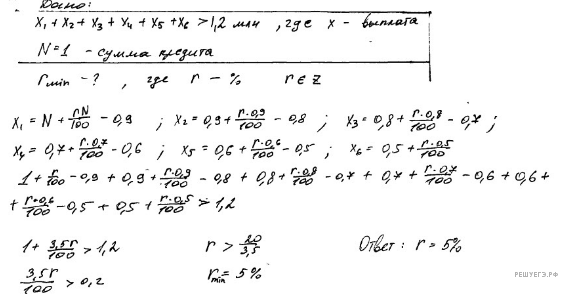 Дано:
x₁ + x₂ + x₃ + x₄ + x₅ + x₆ > 1,2 млн , где x - выплата
N = 1 - сумма кредита
rmin - ? , где r - % r ∈ Z
x₁ = N + rN/100 - 0,9 ; x₂ = 0,9 + r·0,9/100 - 0,8 ; x₃ = 0,8 + r·0,8/100 - 0,7 ;
x₄ = 0,7 + r·0,7/100 - 0,6 ; x₅ = 0,6 + r·0,6/100 - 0,5 ; x₆ = 0,5 + r·0,5/100
1 + r/100 - 0,9 + 0,9 + r·0,9/100 - 0,8 + 0,8 + r·0,8/100 - 0,7 + 0,7 + r·0,7/100 - 0,6 + 0,6 +
+ r·0,6/100 - 0,5 + 0,5 + r·0,5/100 > 1,2
1 + 3,5r/100 > 1,2 r > 20/3,5 Ответ : r = 5%
3,5r/100 > 0,2 rmin = 5%
РЕШУЕГЭ.РФ